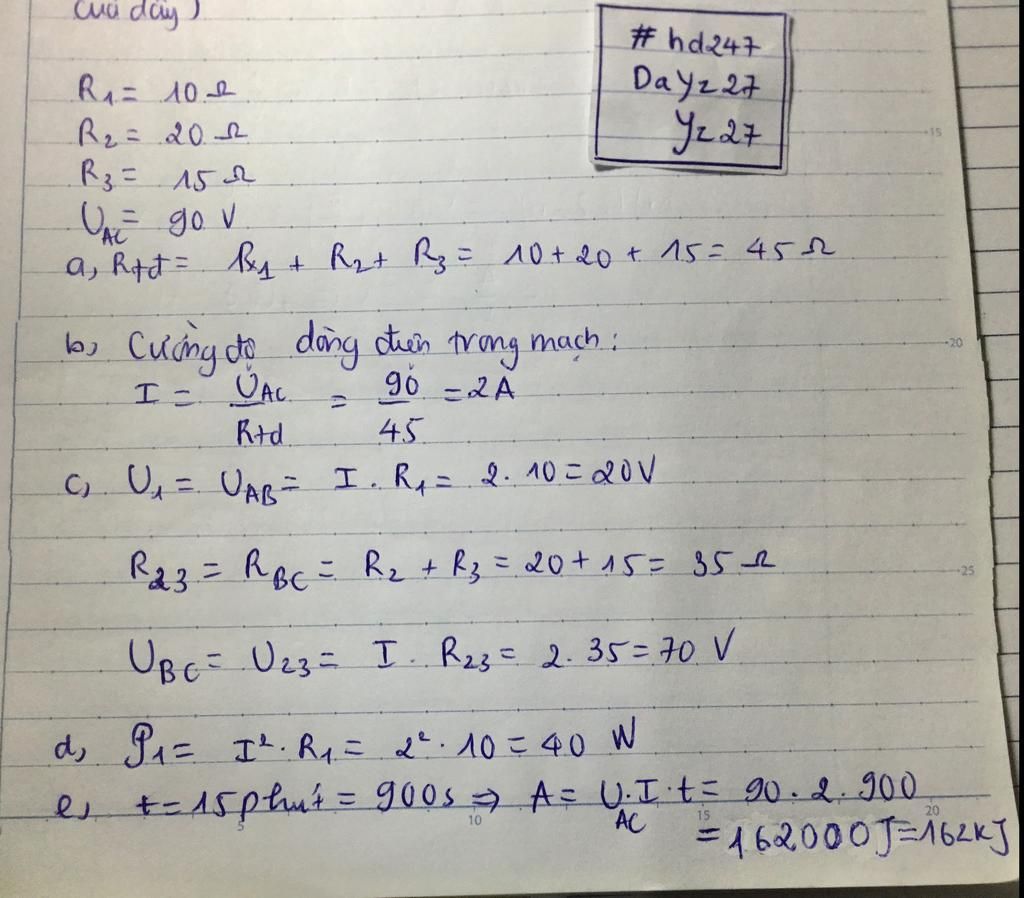 của dây)
# hd247
DaYz27
Yz27
R1 = 10 Ω
R2 = 20 Ω
R3 = 15 Ω
UAC = 90 V
a, Rtđ = R1 + R2 + R3 = 10 + 20 + 15 = 45 Ω
b, Cường độ dòng điện trong mạch:
I = UAC / Rtđ = 90 / 45 = 2A
c, U1 = UAB = I . R1 = 2 . 10 = 20V
R23 = RBC = R2 + R3 = 20 + 15 = 35 Ω
UBC = U23 = I . R23 = 2. 35 = 70 V
d, P1 = I² . R1 = 2² . 10 = 40 W
e, t = 15 phút = 900s ⇒ A = UAC . I . t = 90 . 2 . 900
= 162000J = 162kJ
15
20
25
5
10
15
20